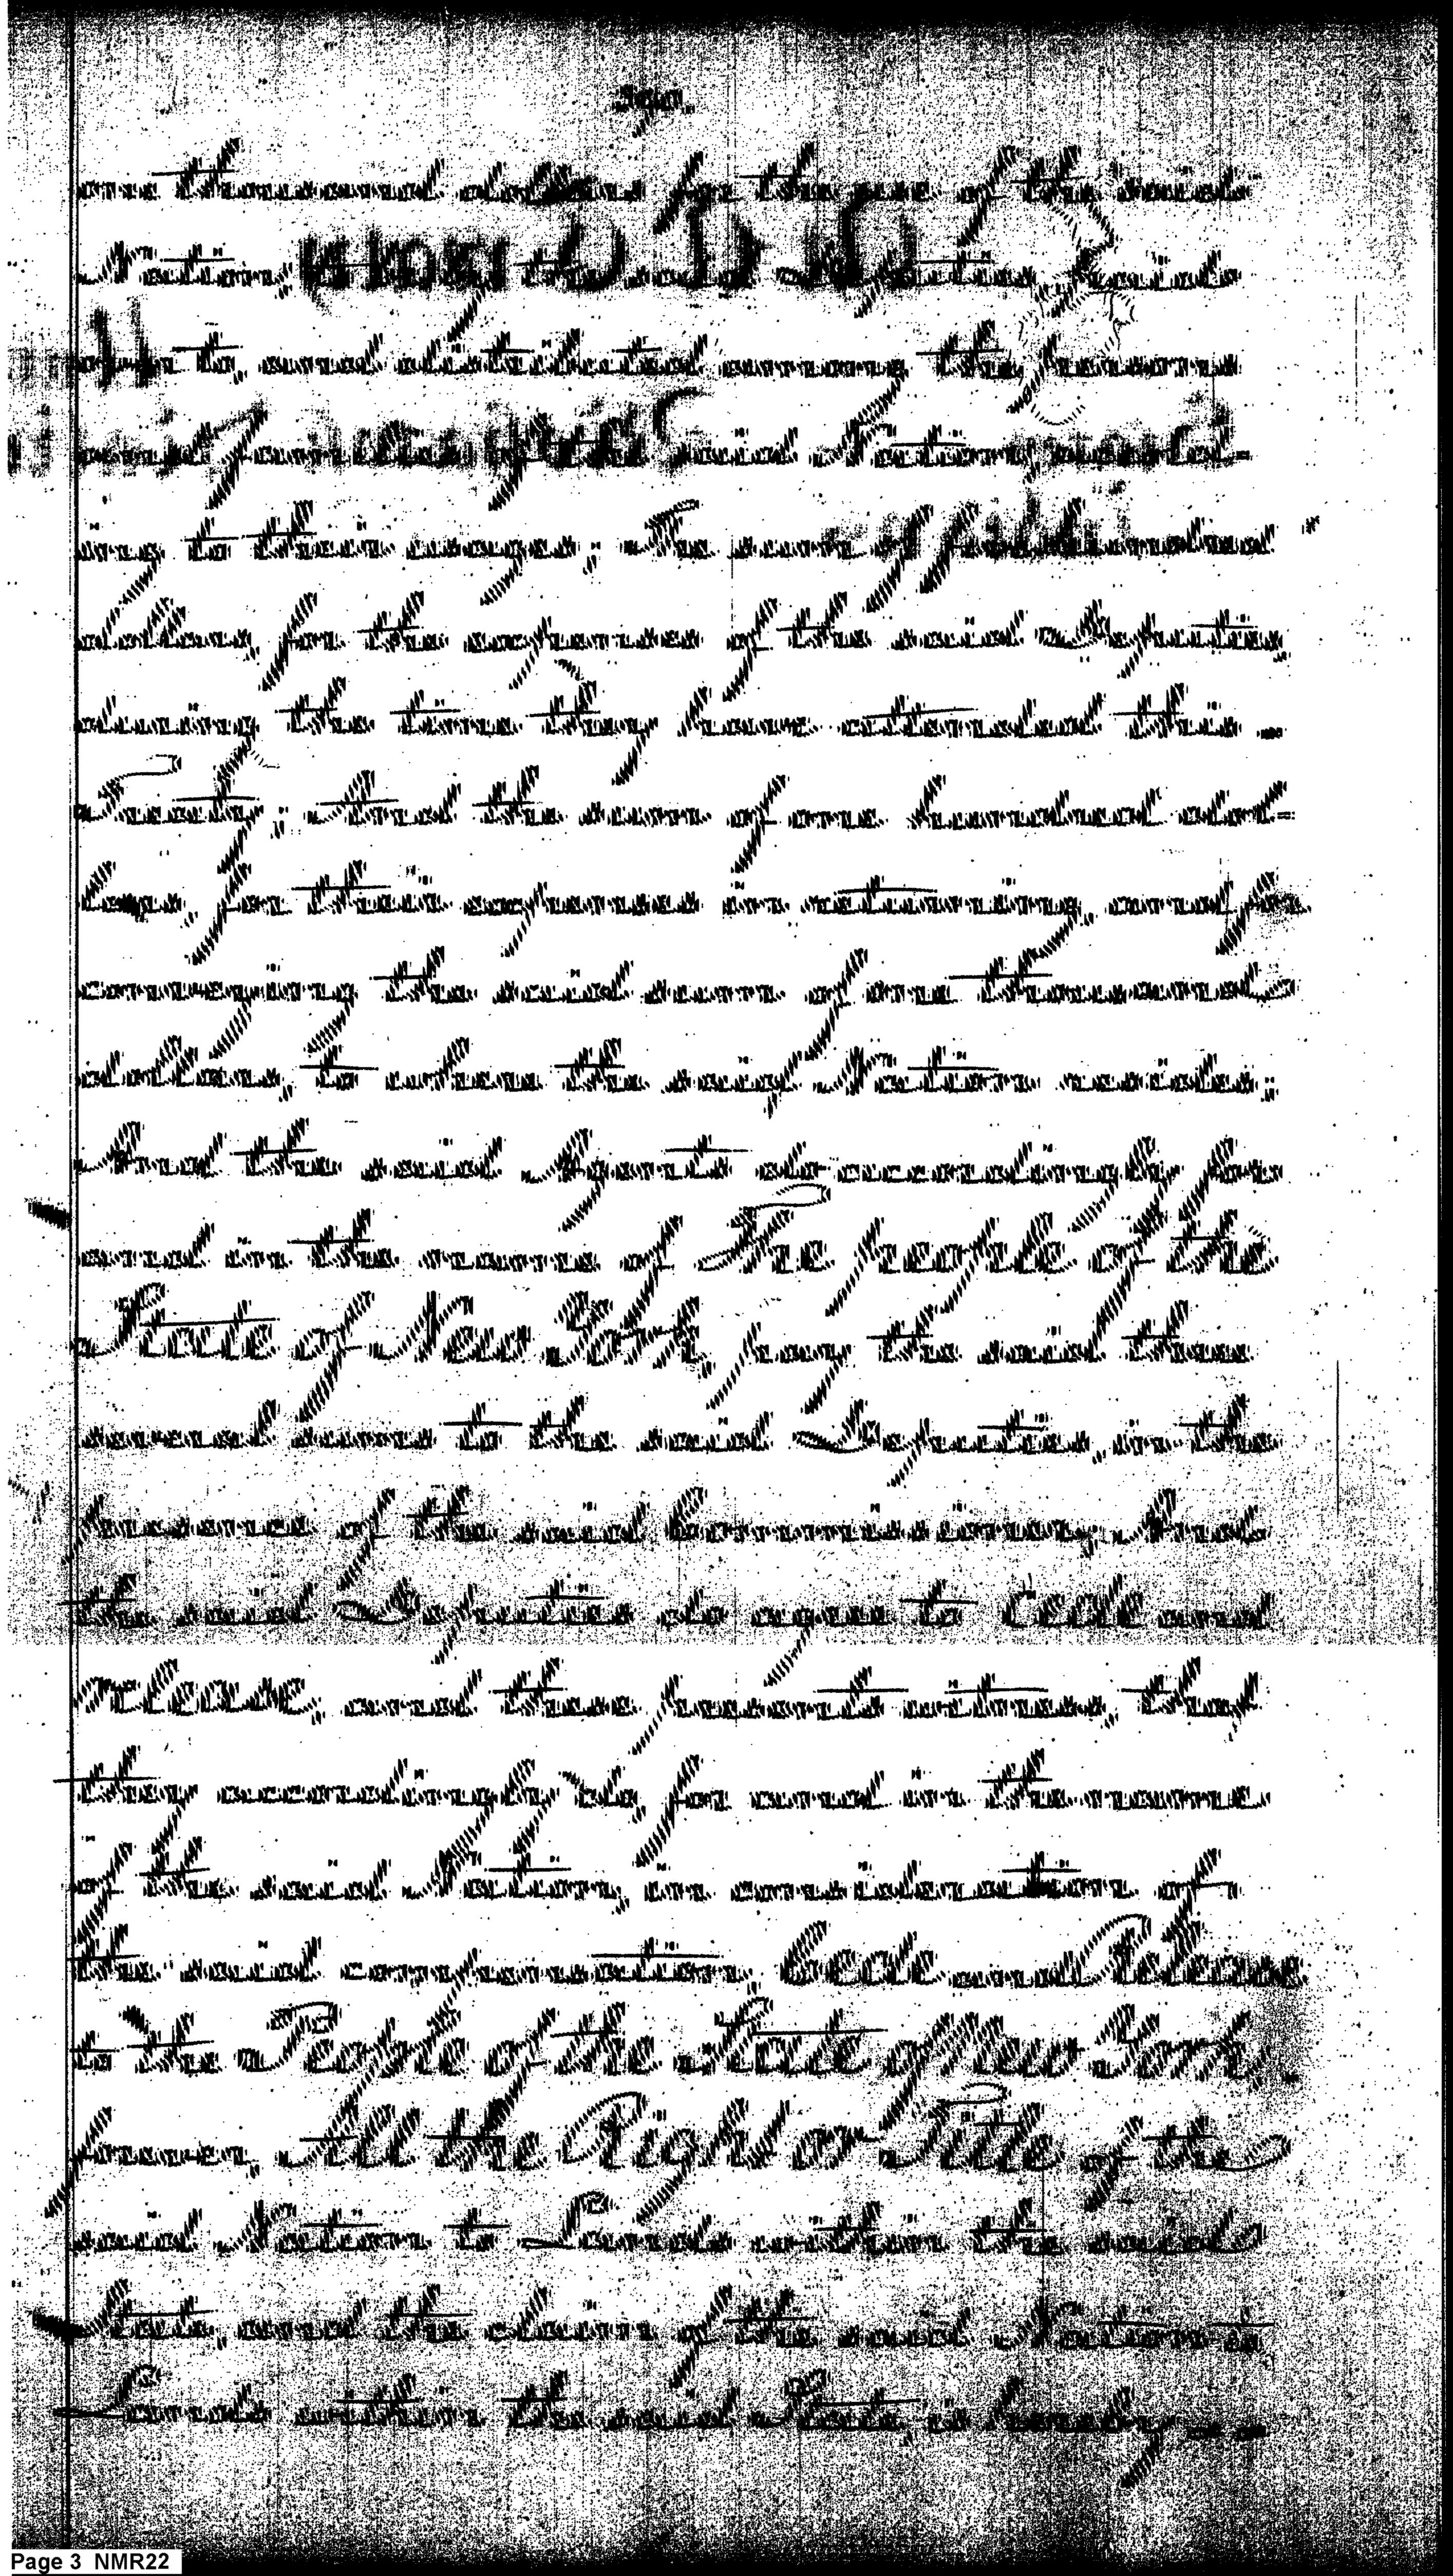 one thousand dollars, for the use of the said
Nation, to be by the said Deputies paid
over to, and distributed among, the persons
and families of the said Nation, accord-
ing to their usages; The sum of five hundred
dollars, for the expenses of the said Deputies,
during the time they have attended this
Treaty: And the sum of one hundred dol=
lars, for their expenses in returning, and for
conveying the said sum of one thousand
dollars, to where the said Nation resides;
And the said Agents do accordingly, for
and in the name of The People of the
State of New York, pay the said three
several sums to the said Deputies, in the
presence of the said Commissioner; And
the said Deputies do agree to Cede and
release, and these presents witness, that
they accordingly do, for and in the name
of the said Nation, in consideration of
the said compensation, Cede and Release
to the People of the State of New York
forever, All the Right or Title of the
said Nation to Lands within the said
State, and the claim of the said Nation to
Lands within the said State, is hereby
Page 3 NMR22